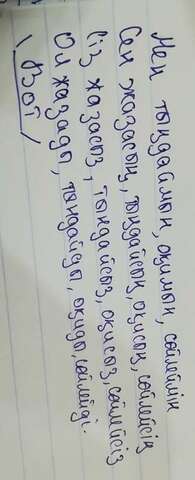 Мен тыңдаймын, оқимын, сөйлеймін
Сен жазасың, тыңдайсың, оқисың, сөйлейсің
Сіз жазасыз, тыңдайсыз, оқисыз, сөйлейсіз
Ол жазады, тыңдайды, оқиды, сөйлейді.
Вот